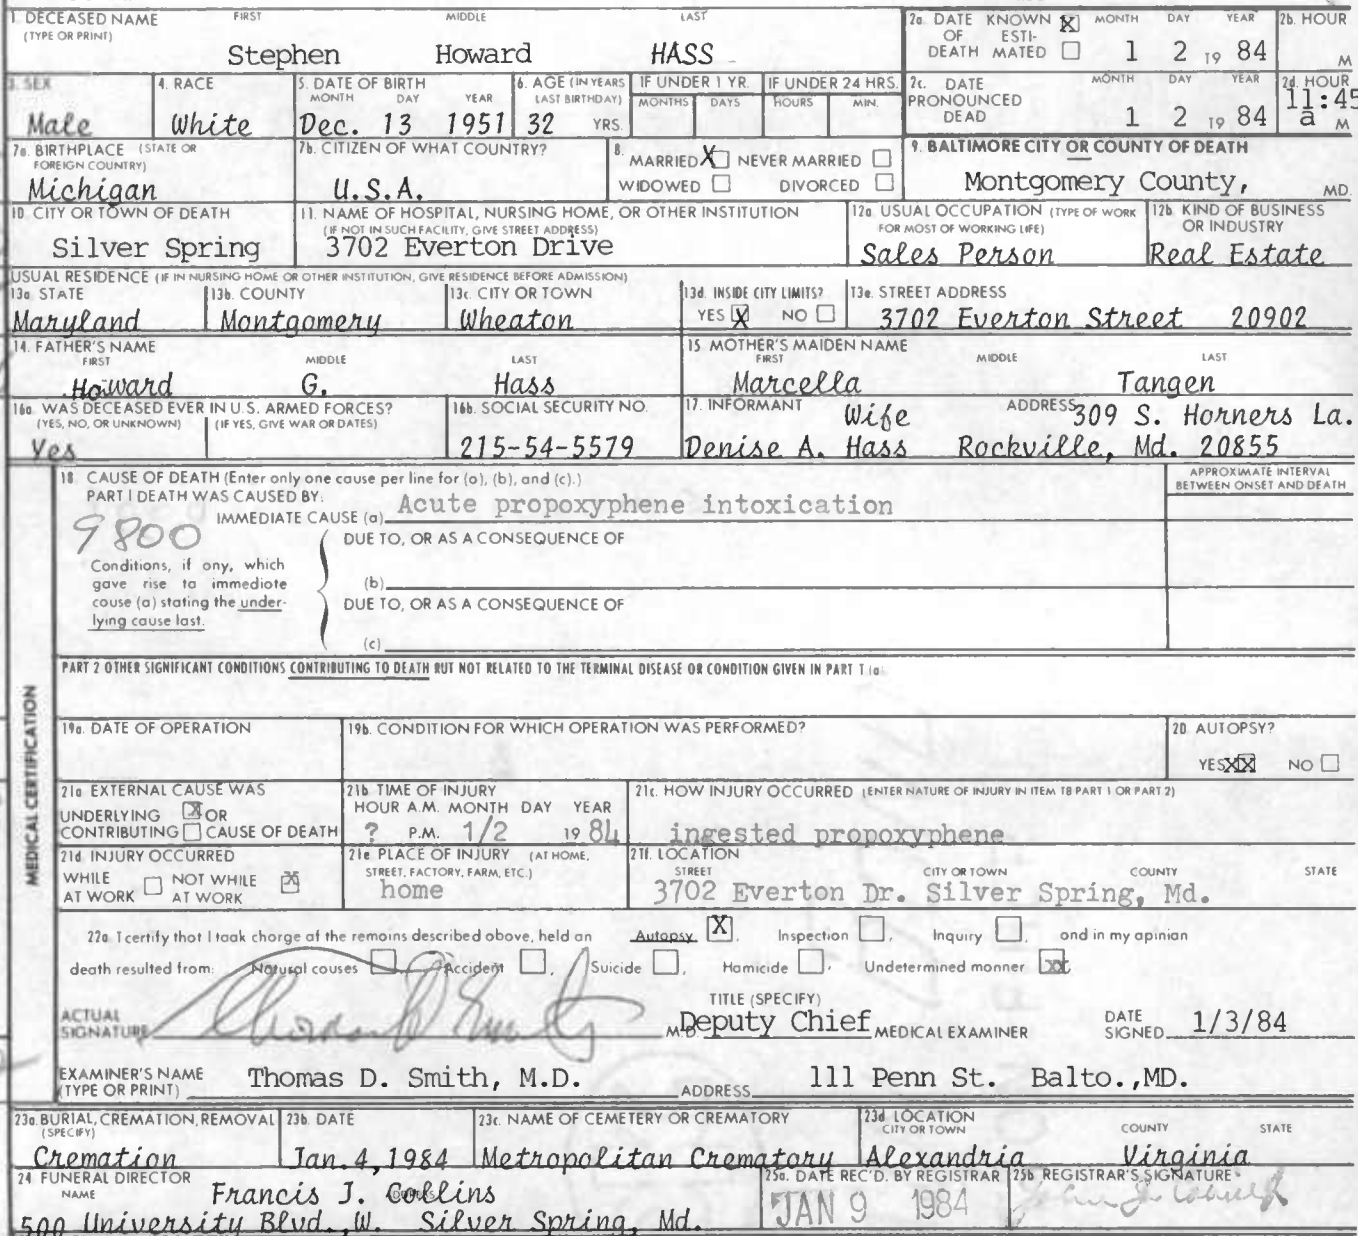 1 DECEASED NAME FIRST MIDDLE LAST
(TYPE OR PRINT)
Stephen Howard HASS
2a. DATE KNOWN X MONTH DAY YEAR
OF ESTI-
DEATH MATED 1 2 19 84
2b. HOUR
M
3. SEX
Male
4. RACE
White
5. DATE OF BIRTH
MONTH DAY YEAR
Dec. 13 1951
6. AGE (IN YEARS
LAST BIRTHDAY)
32 YRS.
IF UNDER 1 YR.
MONTHS DAYS
IF UNDER 24 HRS.
HOURS MIN.
2c. DATE MONTH DAY YEAR
PRONOUNCED
DEAD 1 2 19 84
2d. HOUR
11:45
a M
7a. BIRTHPLACE (STATE OR
FOREIGN COUNTRY)
Michigan
7b. CITIZEN OF WHAT COUNTRY?
U.S.A.
8.
MARRIED X NEVER MARRIED
WIDOWED DIVORCED
9. BALTIMORE CITY OR COUNTY OF DEATH
Montgomery County, MD.
10. CITY OR TOWN OF DEATH
Silver Spring
11. NAME OF HOSPITAL, NURSING HOME, OR OTHER INSTITUTION
(IF NOT IN SUCH FACILITY, GIVE STREET ADDRESS)
3702 Everton Drive
12a. USUAL OCCUPATION (TYPE OF WORK
FOR MOST OF WORKING LIFE)
Sales Person
12b. KIND OF BUSINESS
OR INDUSTRY
Real Estate
USUAL RESIDENCE (IF IN NURSING HOME OR OTHER INSTITUTION, GIVE RESIDENCE BEFORE ADMISSION)
13a. STATE
Maryland
13b. COUNTY
Montgomery
13c. CITY OR TOWN
Wheaton
13d. INSIDE CITY LIMITS?
YES X NO
13e. STREET ADDRESS
3702 Everton Street 20902
14. FATHER'S NAME
FIRST MIDDLE LAST
Howard G. Hass
15. MOTHER'S MAIDEN NAME
FIRST MIDDLE LAST
Marcella Tangen
16a. WAS DECEASED EVER IN U.S. ARMED FORCES?
(YES, NO, OR UNKNOWN) (IF YES, GIVE WAR OR DATES)
Yes
16b. SOCIAL SECURITY NO.
215-54-5579
17. INFORMANT Wife ADDRESS 309 S. Horners La.
Denise A. Hass Rockville, Md. 20855
18. CAUSE OF DEATH (Enter only one cause per line for (a), (b), and (c).)
APPROXIMATE INTERVAL
BETWEEN ONSET AND DEATH
PART I DEATH WAS CAUSED BY:
IMMEDIATE CAUSE (a) Acute propoxyphene intoxication
9800
DUE TO, OR AS A CONSEQUENCE OF
Conditions, if any, which
gave rise to immediate
cause (a) stating the under-
lying cause last.
(b)
DUE TO, OR AS A CONSEQUENCE OF
(c)
PART 2 OTHER SIGNIFICANT CONDITIONS CONTRIBUTING TO DEATH BUT NOT RELATED TO THE TERMINAL DISEASE OR CONDITION GIVEN IN PART 1 (a)
MEDICAL CERTIFICATION
19a. DATE OF OPERATION
19b. CONDITION FOR WHICH OPERATION WAS PERFORMED?
20. AUTOPSY?
YES XX NO
21a EXTERNAL CAUSE WAS
UNDERLYING X OR
CONTRIBUTING CAUSE OF DEATH
21b TIME OF INJURY
HOUR A.M. MONTH DAY YEAR
? P.M. 1/2 19 84
21c. HOW INJURY OCCURRED (ENTER NATURE OF INJURY IN ITEM 18 PART 1 OR PART 2)
ingested propoxyphene
21d INJURY OCCURRED
WHILE NOT WHILE X
AT WORK AT WORK
21e PLACE OF INJURY (AT HOME,
STREET, FACTORY, FARM, ETC.)
home
21f. LOCATION
STREET CITY OR TOWN COUNTY STATE
3702 Everton Dr. Silver Spring, Md.
22a I certify that I took charge of the remains described above, held an Autopsy X, Inspection , Inquiry , and in my opinion
death resulted from: Natural causes , Accident , Suicide , Homicide , Undetermined manner xx
ACTUAL
SIGNATURE M.D.
TITLE (SPECIFY)
Deputy Chief MEDICAL EXAMINER
DATE
SIGNED 1/3/84
EXAMINER'S NAME
(TYPE OR PRINT) Thomas D. Smith, M.D. ADDRESS 111 Penn St. Balto.,MD.
23a. BURIAL, CREMATION, REMOVAL
(SPECIFY)
Cremation
23b. DATE
Jan. 4,1984
23c. NAME OF CEMETERY OR CREMATORY
Metropolitan Crematory
23d. LOCATION
CITY OR TOWN COUNTY STATE
Alexandria Virginia
24 FUNERAL DIRECTOR
NAME Francis J. Collins
ADDRESS
500 University Blvd.,W. Silver Spring, Md.
25a. DATE REC'D. BY REGISTRAR
JAN 9 1984
25b. REGISTRAR'S SIGNATURE